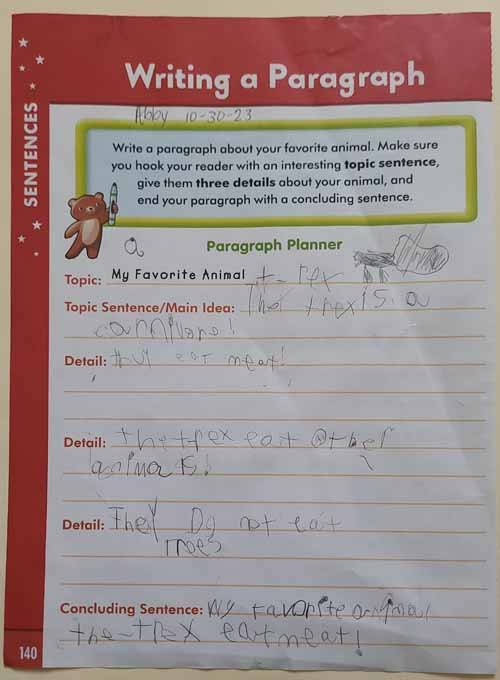 Writing a Paragraph
Abby 10-30-23
SENTENCES
Write a paragraph about your favorite animal. Make sure
you hook your reader with an interesting topic sentence,
give them three details about your animal, and
end your paragraph with a concluding sentence.
a
Paragraph Planner
Topic: My Favorite Animal t-rex
Topic Sentence/Main Idea: The trex is a
Detail: eat meat!
Detail: the trex eat Other
Detail: They Do not eat
Concluding Sentence: My favorite animal
the-trex eat meat!
140